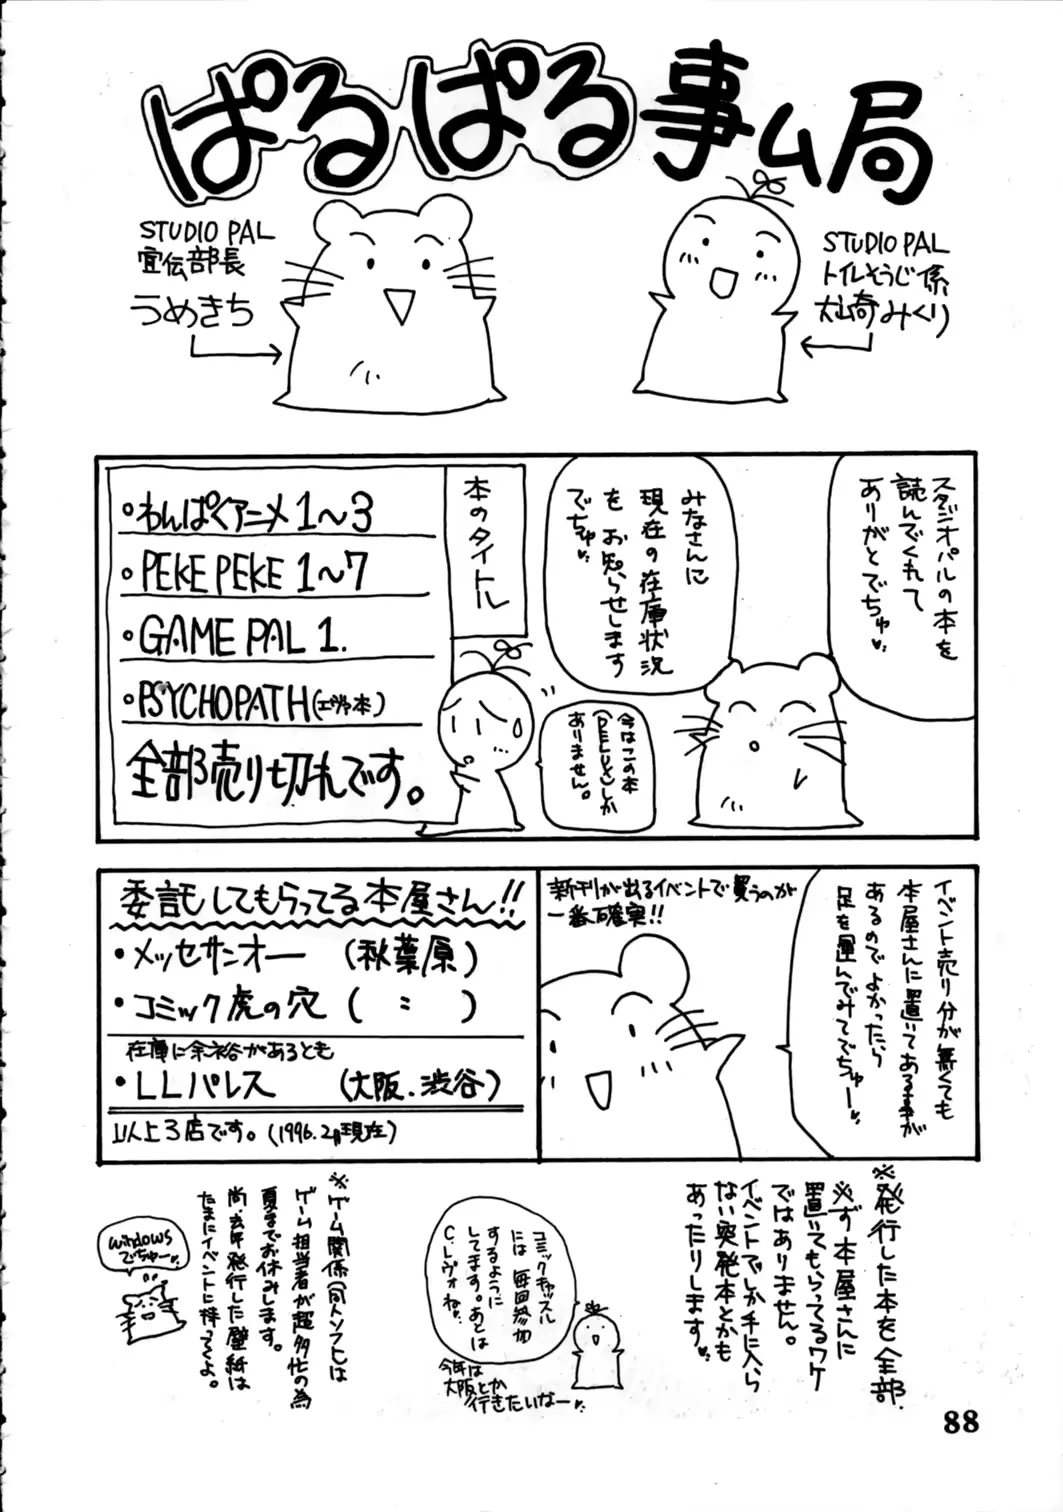 ぱるぱる事ム局
STUDIO PAL
宣伝部長
うめきち
STUDIO PAL
トイレそうじ係
大山奇みくり
スタジオパルの本を
読んでくれて
ありがとでちゅ
みなさんに
現在の在庫状況
をお知らせします
でちゅ
今はこの本
しか
ありません。
本のタイトル
・わんぱくアニメ1〜3
・PEKE PEKE 1〜7
・GAME PAL 1.
・PSYCHOPATH(エヴァ本)
全部売り切れです。
イベント売り分が無くても
本屋さんに置いてある事が
あるのでよかったら
足を運んでみてでちゅー
新刊が出るイベントで買うのが
一番確実!!
委託してもらってる本屋さん!!
・メッセサンオー (秋葉原)
・コミック虎の穴 ( 〃 )
在庫に余裕があるとも
・LLパレス (大阪.渋谷)
以上3店です。(1996.2月現在)
※発行した本を全部
※ず本屋さんに
置いてもらってるワケ
ではありません。
イベントでしか手に入ら
ない突発本とかも
あったりします
コミックキャッスル
には毎回参加
するように
してます。あとは
C.レヴォね。
今年は
大阪とか
行きたいなー
※ゲーム関係(同人ソフト)は
ゲーム担当者が超多忙の為
夏までお休みします。
尚、去年発行した壁紙は
たまにイベントに持ってくよ。
windows
でちゅー
88